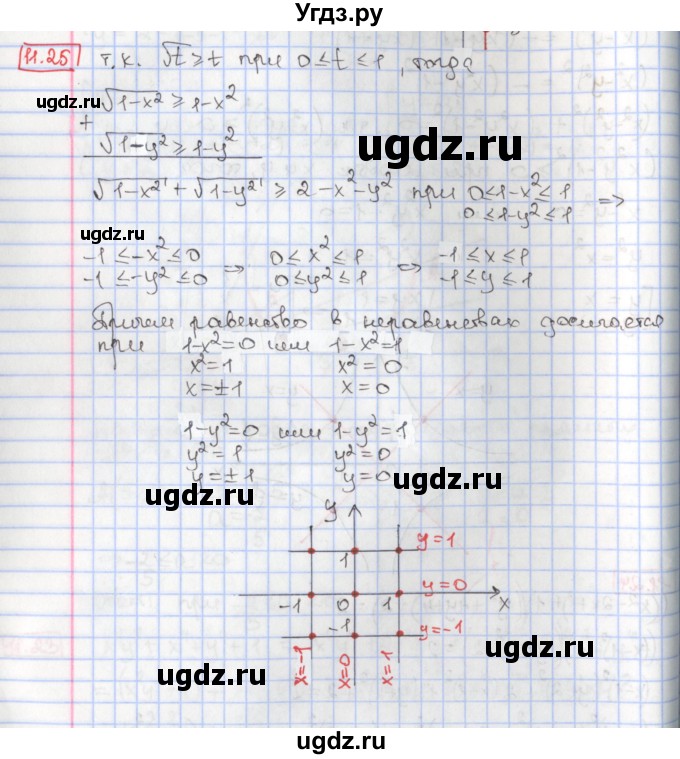 Угдз.ру
11.25 т.к. √t ≥ t при 0 ≤ t ≤ 1, тогда
ugdz.ru
√1-x² ≥ 1-x²
+
√1-y² ≥ 1-y²
ugdz.ru
√1-x² + √1-y² ≥ 2-x²-y² при 0≤1-x²≤1 =>
0≤1-y²≤1
ugdz.ru
-1 ≤ -x² ≤ 0 => 0 ≤ x² ≤ 1 => -1 ≤ x ≤ 1
-1 ≤ -y² ≤ 0 0 ≤ y² ≤ 1 -1 ≤ y ≤ 1
Причем равенство в неравенствах достигается
при 1-x²=0 или 1-x²=1
x²=1 x²=0
x=±1 x=0
1-y²=0 или 1-y²=1
y²=1 y²=0
y=±1 y=0
ugdz.ru
ugdz.ru
y
y=1
1
y=0
-1 0 1 x
-1 y=-1
ugdz.ru
ugdz.ru
x=-1 x=0 x=1
ugdz.ru